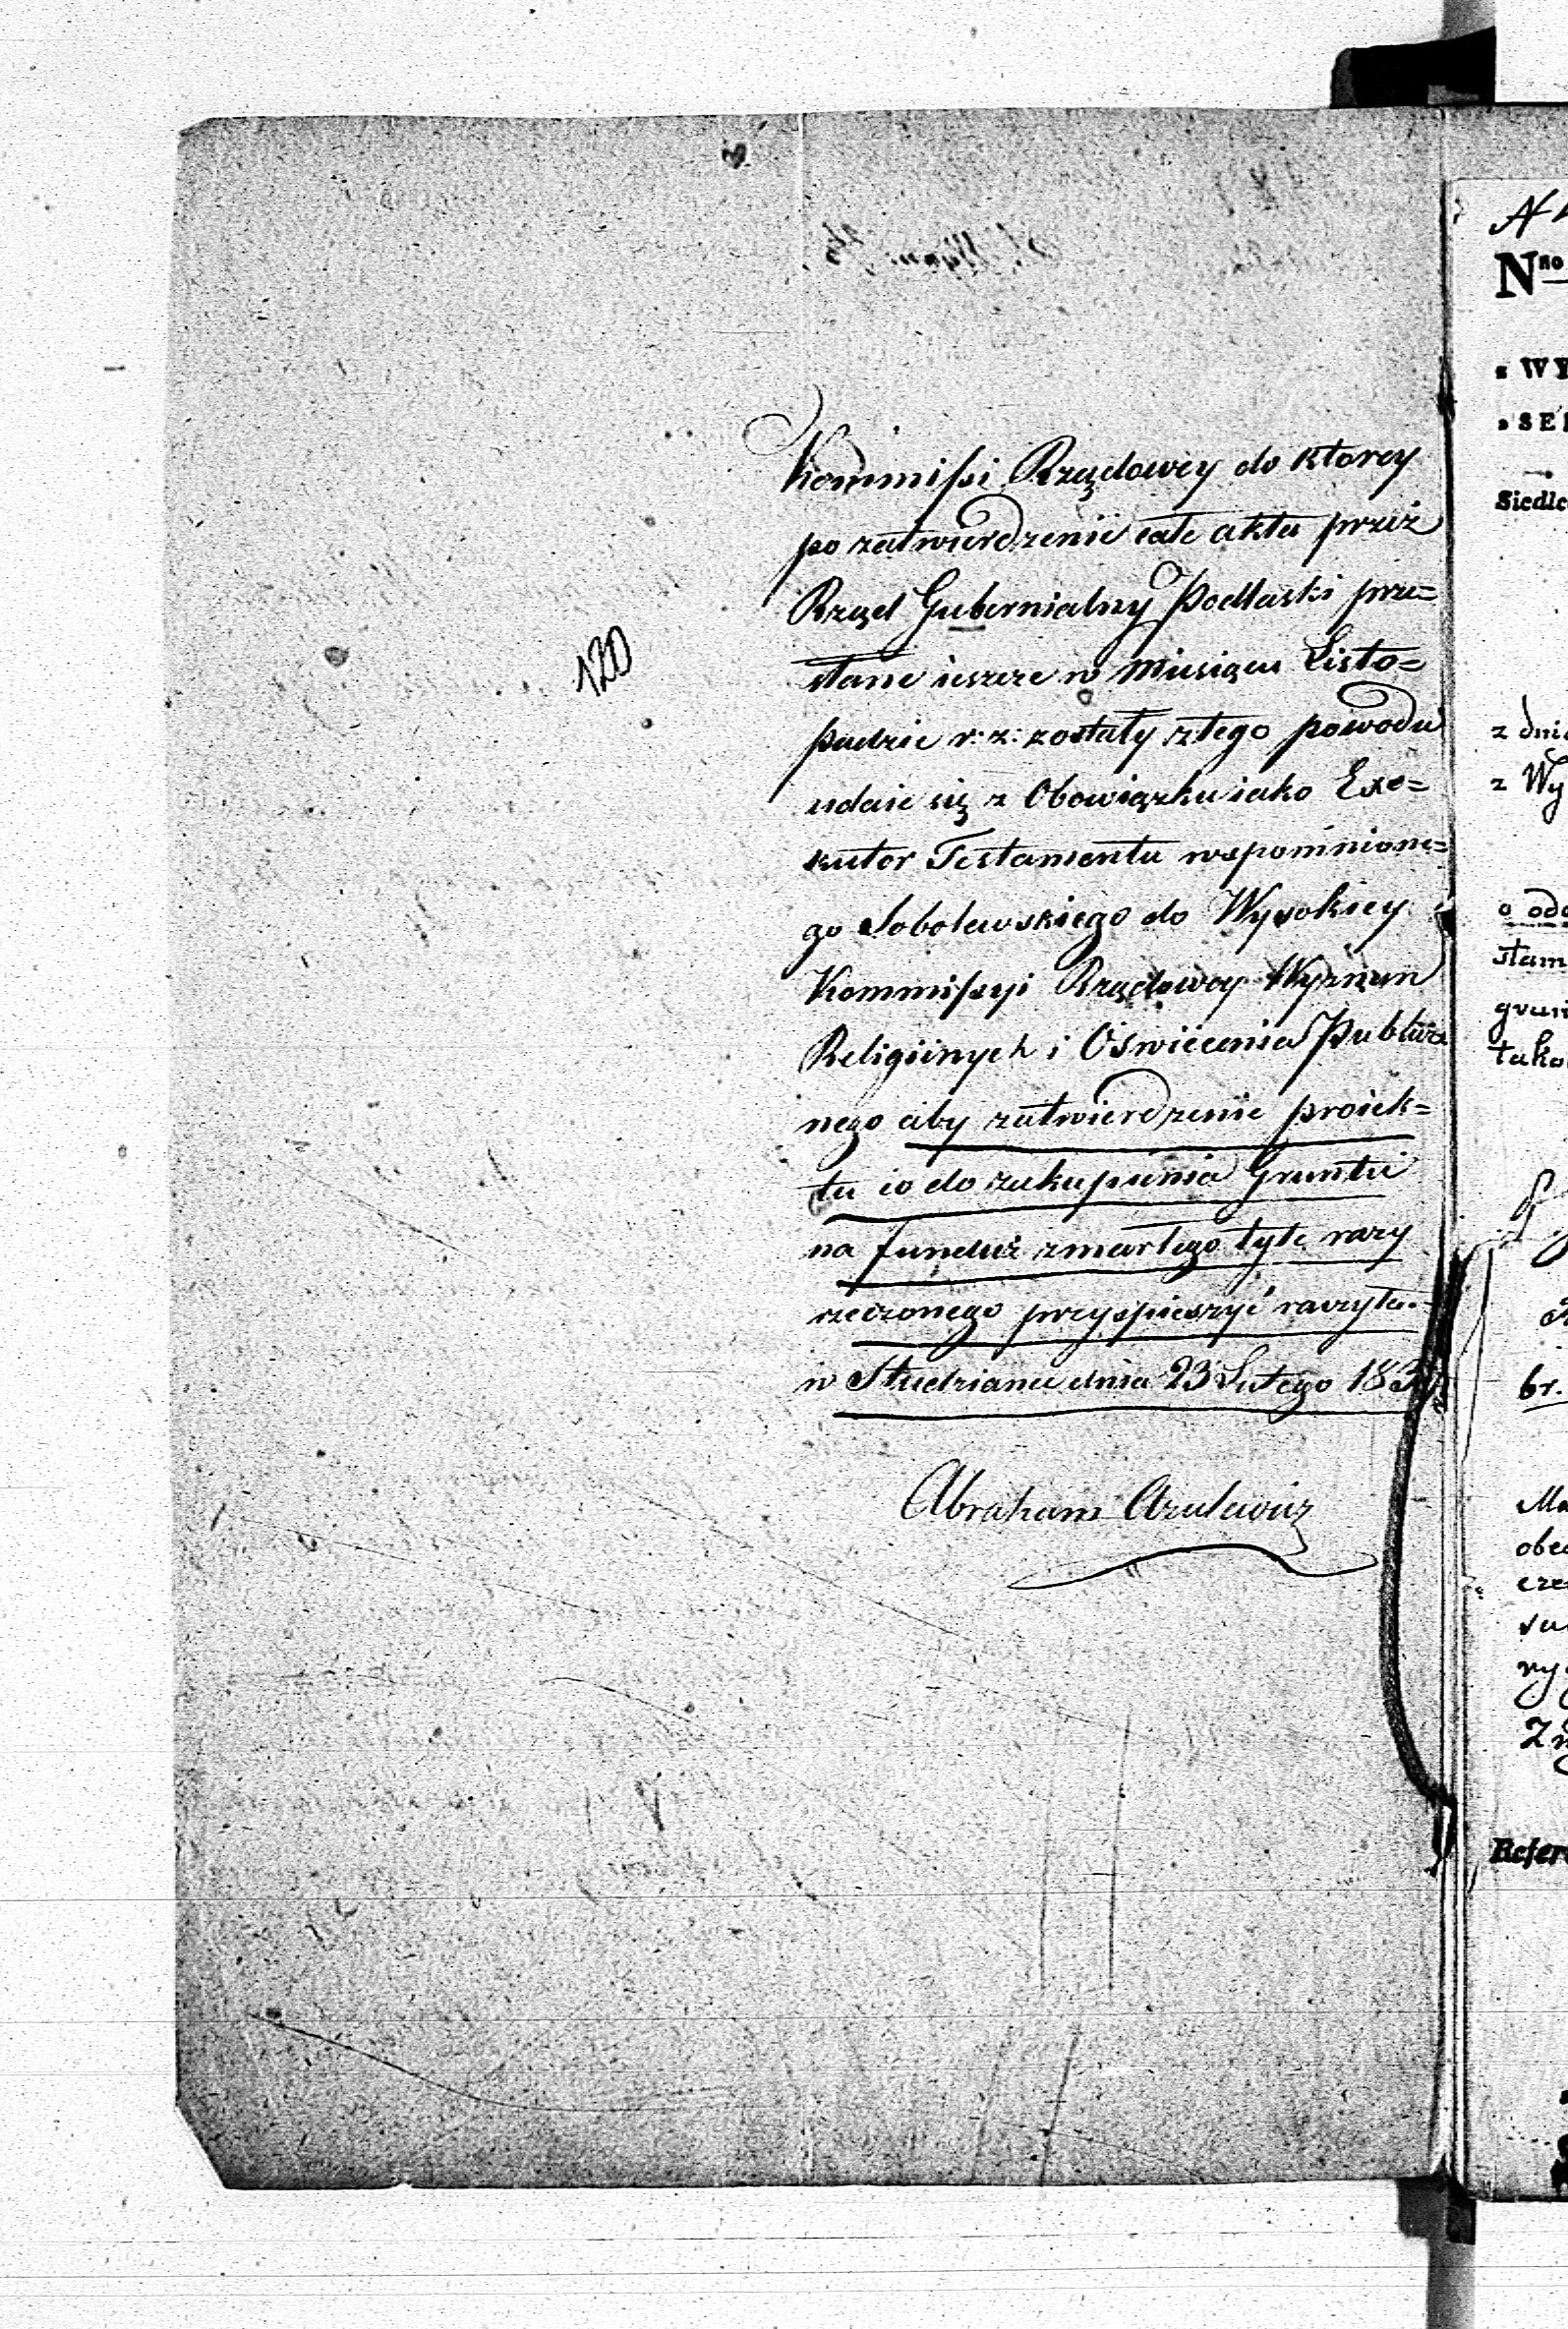 120
Kommissi Rządowey do ktorey
po zatwierdzenie całe akta przez
Rząd Gubernialny Podlaski prze=
słane ieszcze w Miesiącu Listo=
padzie r: z: zostały z tego powodu
udaie się z Obowiązku iako Exe=
kutor Testamentu wspomnione=
go Sobolewskiego do Wysokiey
Kommissyi Rządowey Wyznan
Religiinych i Oświecenia Publicz
nego aby zatwierdzenie proiek=
tu co do zakupienia Gruntu
na fundusz zmarłego tyle razy
rzeczonego przyspieszyć raczyła.
w Studziance dnia 23 Lutego 183
Abraham Azulewicz
Nro
WY
SE
Siedlc
z dnia
z Wy
o odd
stam
grun
tako
br.
Ma
obe
cze
ry
Zn
Refer